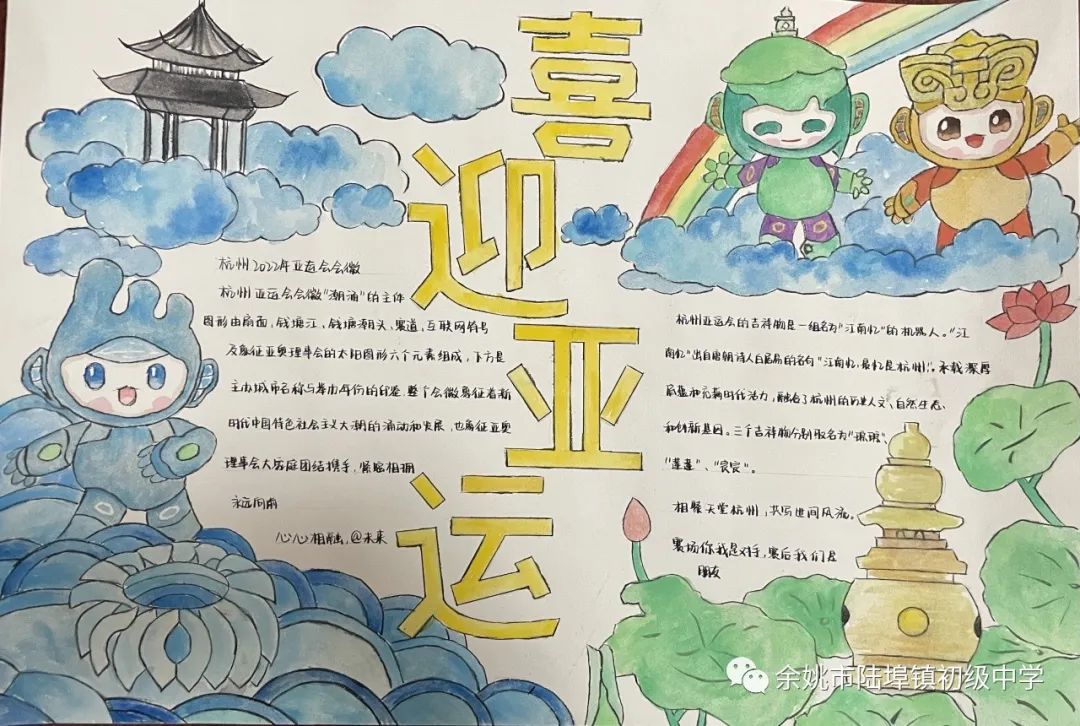 喜
迎
亚
运
杭州2022年亚运会会徽
杭州亚运会会徽"潮涌"的主体
图形由扇面、钱塘江、钱塘潮头、赛道、互联网符号
及象征亚奥理事会的太阳图形六个元素组成,下方是
主办城市名称与举办年份的印鉴.整个会徽象征着新
时代中国特色社会主义大潮的涌动和发展,也象征亚奥
理事会大家庭团结携手,紧密相拥
永远向前
心心相融,@未来
杭州亚运会的吉祥物是一组名为"江南忆"的机器人。"江
南忆"出自唐朝诗人白居易的名句"江南忆,最忆是杭州",承载深厚
底蕴和充满时代活力,融合了杭州的历史人文、自然生态
和创新基因。三个吉祥物分别取名为"琮琮"、
"莲莲"、"宸宸"。
相聚天堂杭州,共写世间风流。
赛场你我是对手,赛后我们是
朋友
余姚市陆埠镇初级中学